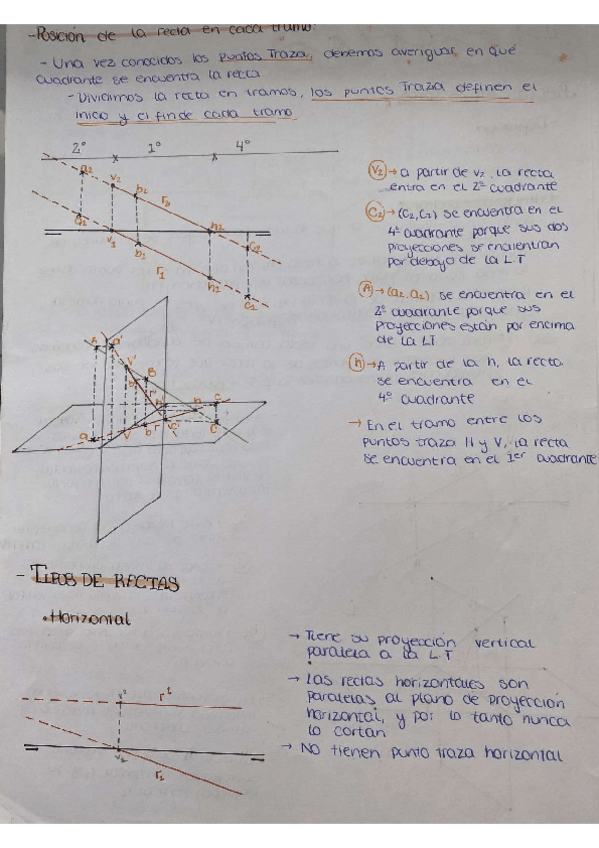 -Posición de la recta en cada tramo:
- Una vez conocidos los Puntos Traza, debemos averiguar, en qué
cuadrante se encuentra la recta
- Dividimos la recta en tramos, los puntos Traza definen el
inicio y el fin de cada tramo
2º 1º 4º
a2 v2 b2 r2 h2
c2 v1 b1 r1 h1 c2 c1
V2 → a partir de v2 la recta
entra en el 2º cuadrante
C2 → (C2,C1) se encuentra en el
4º cuadrante porque sus dos
proyecciones se encuentran
por debajo de la L.T
A → (a2,a2) se encuentra en el
2º cuadrante porque sus
proyecciones están por encima
de la LT
h → A partir de la h, la recta
se encuentra en el
4º cuadrante
→ En el tramo entre los
puntos traza H y V, la recta
se encuentra en el 1er cuadrante
A a' V' B b' r' h C
a V b r c' C
- TIPOS DE RECTAS
• Horizontal
→ Tiene su proyección vertical
paralela a la L.T
→ Las rectas horizontales son
paralelas al plano de proyección
horizontal, y por lo tanto nunca
lo cortan
→ No tienen punto traza horizontal
v2 r
v1 r1